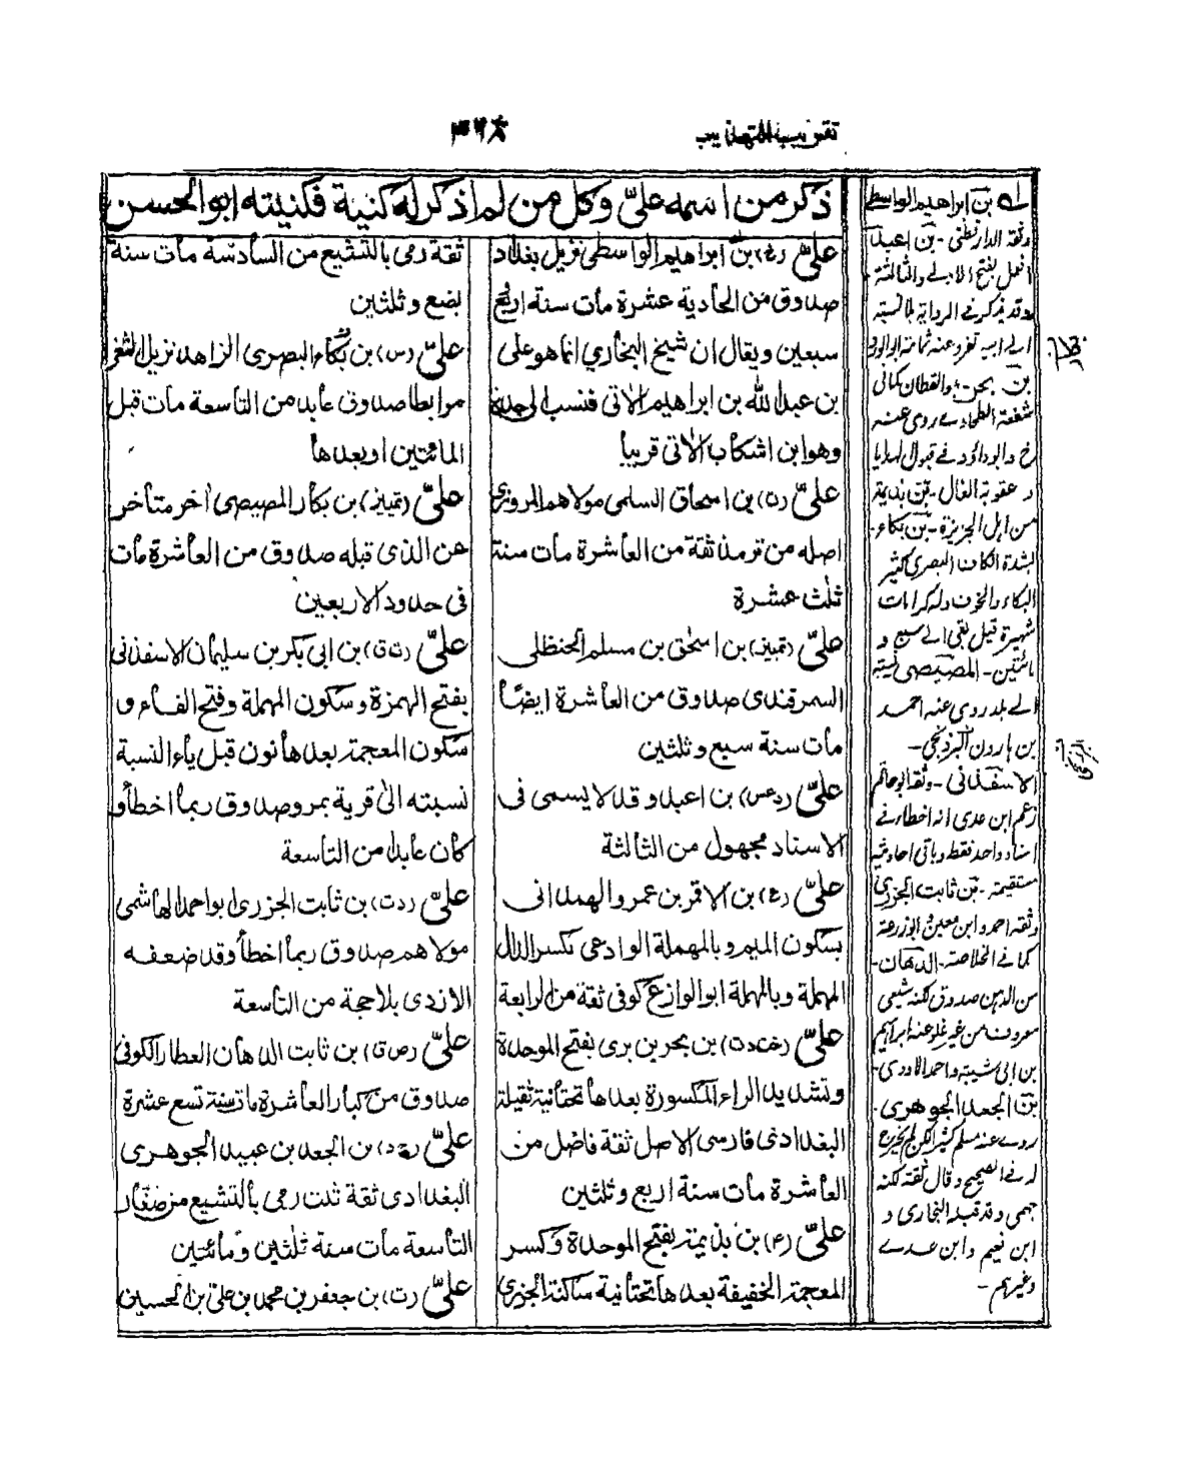 تقريب التهذيب
٣٦٨
ذكر من اسمه عليّ وكل من لم اذكر له كنية فكنيته ابو الحسن
عليّ (خ) بن ابراهيم الواسطى نزيل بغداد
صدوق من الحادية عشرة مات سنة اربع
سبعين ويقال ان شيخ البخاري انما هو على
بن عبد الله بن ابراهيم الاتى فنسب الى جده
وهو ابن اشكاب الاتى قريبا
عليّ (ت) بن اسحاق السلمى مولاهم المروزى
اصله من ترمذ ثقة من العاشرة مات سنة
ثلث عشرة
عليّ (تمييز) بن اسحق بن مسلم الحنظلى
السمرقندى صدوق من العاشرة ايضًا
مات سنة سبع وثلثين
عليّ (دعس) بن اعبد وقد لا يسمى فى
الاسناد مجهول من الثالثة
عليّ (ع) بن الاقمر بن عمرو الهمدانى
بسكون الميم وبالمهملة الوادعى بكسر الدال
المهملة وبالمهملة ابو الوازع كوفى ثقة من الرابعة
عليّ (خت د ت) بن بحر بن برى بفتح الموحدة
وتشديد الراء المكسورة بعدها تحتانية ثقيلة
البغدادى فارسى الاصل ثقة فاضل من
العاشرة مات سنة اربع وثلثين
عليّ (۴) بن بذيمة بفتح الموحدة وكسر
المعجمة الخفيفة بعدها تحتانية ساكنة الجزرى
ثقة رمى بالتشيع من السادسة مات سنة
بضع وثلثين
عليّ (س) بن بكاء البصرى الزاهد نزيل الثغر
مرابطا صدوق عابد من التاسعة مات قبل
المائتين او بعدها
عليّ (تمييز) بن بكار المصيصى اخر متأخر
عن الذى قبله صدوق من العاشرة مات
فى حدود الاربعين
عليّ (ت ق) بن ابى بكر بن سليمان الاسفذنى
بفتح الهمزة وسكون المهملة وفتح الفاء و
سكون المعجمة بعدها نون قبل ياء النسبة
نسبته الى قرية بمرو صدوق ربما اخطأ و
كان عابدا من التاسعة
عليّ (د ت) بن ثابت الجزرى ابو احمد الهاشمى
مولاهم صدوق ربما اخطأ وقد ضعفه
الازدى بلا حجة من التاسعة
عليّ (ص ق) بن ثابت الدهان العطار الكوفى
صدوق من كبار العاشرة مات سنة تسع عشرة
عليّ (خ د) بن الجعد بن عبيد الجوهرى
البغدادى ثقة ثبت رمى بالتشيع من صغار
التاسعة مات سنة ثلثين ومائتين
عليّ (ت) بن جعفر بن محمد بن على بن الحسين
له بن ابراهيم الواسطى
وثقه الدارقطنى - بن اعبد
افعل بفتح الاولى والثالثة
وقد يذكر فى الرواية بالنسبة
الى ابيه تفرد عنه ثمامة ابو الورد
بن بحر وثقه القطان كما فى
روى عنه
خ د ابو داؤد فى قبول الهدايا
و عقوبة الغال - بن بذيمة
من اهل الجزيرة - بن بكاء
بشدة الكاف البصرى كثير
البكاء والخوف وله كرامات
شهيرة قيل بقى الى سبع و
مائتين - المصيصى نسبة
الى بلد روى عنه احمد
بن هارون البرديجى -
الاسفذنى - وثقه ابو حاتم
زعم ابن عدى انه اخطاء فى
اسناد واحد فقط وباقى احاديثه
مستقيمة - بن ثابت الجزرى
وثقه احمد وابن معين وابو زرعة
كما فى الخلاصة - الدهان -
من الدهن صدوق لكنه شيعى
معروف من غير غلو عنه ابراهيم
بن ابى شيبة واحمد الاودى -
بن الجعد الجوهرى -
روى عنه مسلم كثيرا لكن لم يخرج
له فى الصحيح وقال ثقة لكنه
جهمى وقد قيد البخارى و
ابن نعيم وابن عدى
وغيرهم -